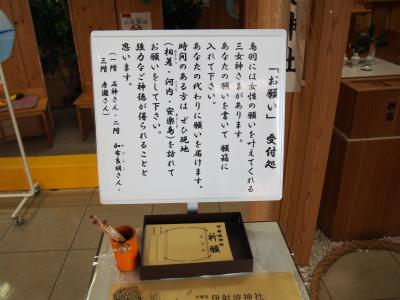 「お願い」 受付処
鳥羽には女性の願いを叶えてくれる
三女神さまがあります。
あなたの願いを書いて 願箱に
入れて下さい。
あなたの代わりに願いを届けます。
時間のある方は ぜひ現地
(相差・河内・安楽島)を訪れて
お願いをして下さい。
強力なご神徳が得られることと
思います。
(一階 石神さん・二階 加布良胡さん・
三階 さん)
伊射波神社
祈願
伊射波神社
神社